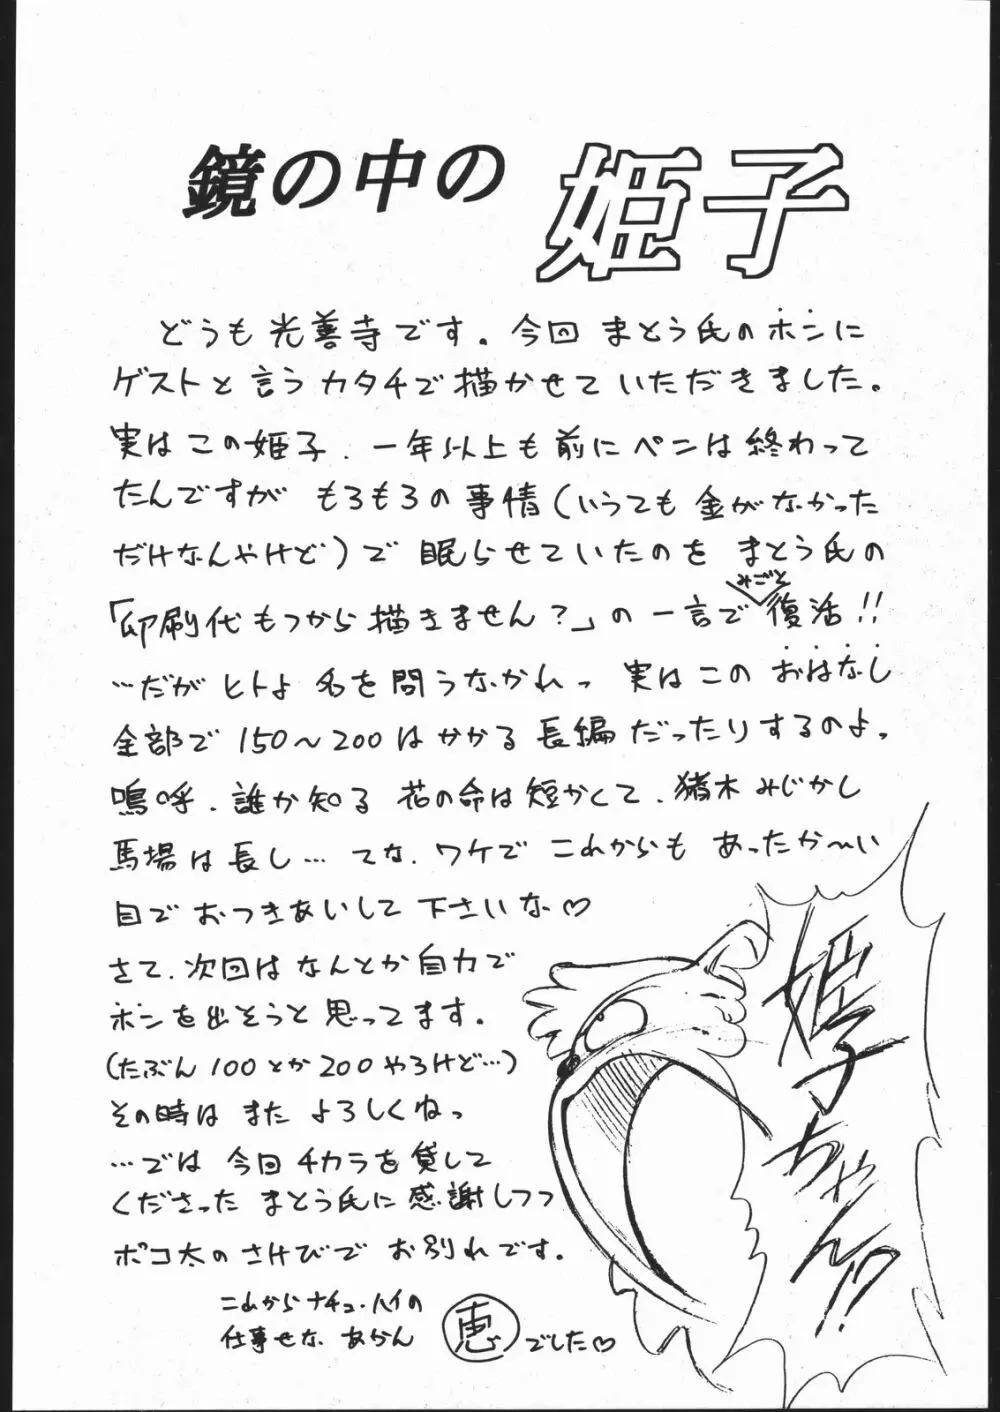 鏡の中の姫子
どうも光善寺です。今回まとう氏のホンに
ゲストと言うカタチで描かせていただきました。
実はこの姫子、一年以上も前にペンは終わって
たんですが もろもろの事情(いうても金がなかった
だけなんやけど)で 眠らせていたのを まとう氏の
「印刷代もつから描きません?」の一言で みごと 復活!!
…だがヒトよ 名を問うなかれっ 実はこのおはなし
全部で150〜200はかかる長編だったりするのよっ
嗚呼、誰か知る 花の命は短かくて、猪木みじかし
馬場は長し… てな、ワケで これからも あったか〜い
目で おつきあいして 下さいな♡
さて、次回はなんとか自力で
ホンを出そうと思ってます。
(たぶん100とか200やろけど…)
その時は また よろしくねっ
…では 今回 チカラを貸して
くださった まとう氏に 感謝しつつ
ポコ太のさけびで お別れです。
これからナチュ・ハイの
仕事せな あかん 恵 でした♡
姫子ちゃん!?